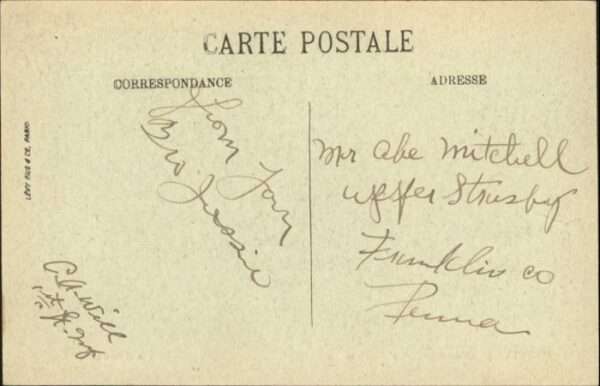 CARTE POSTALE
CORRESPONDANCE
ADRESSE
LÉVY FILS & CIE, PARIS
from your
Bro. Jessie
Mr Abe Mitchell
Upper Strasbg
Franklin co
Penna